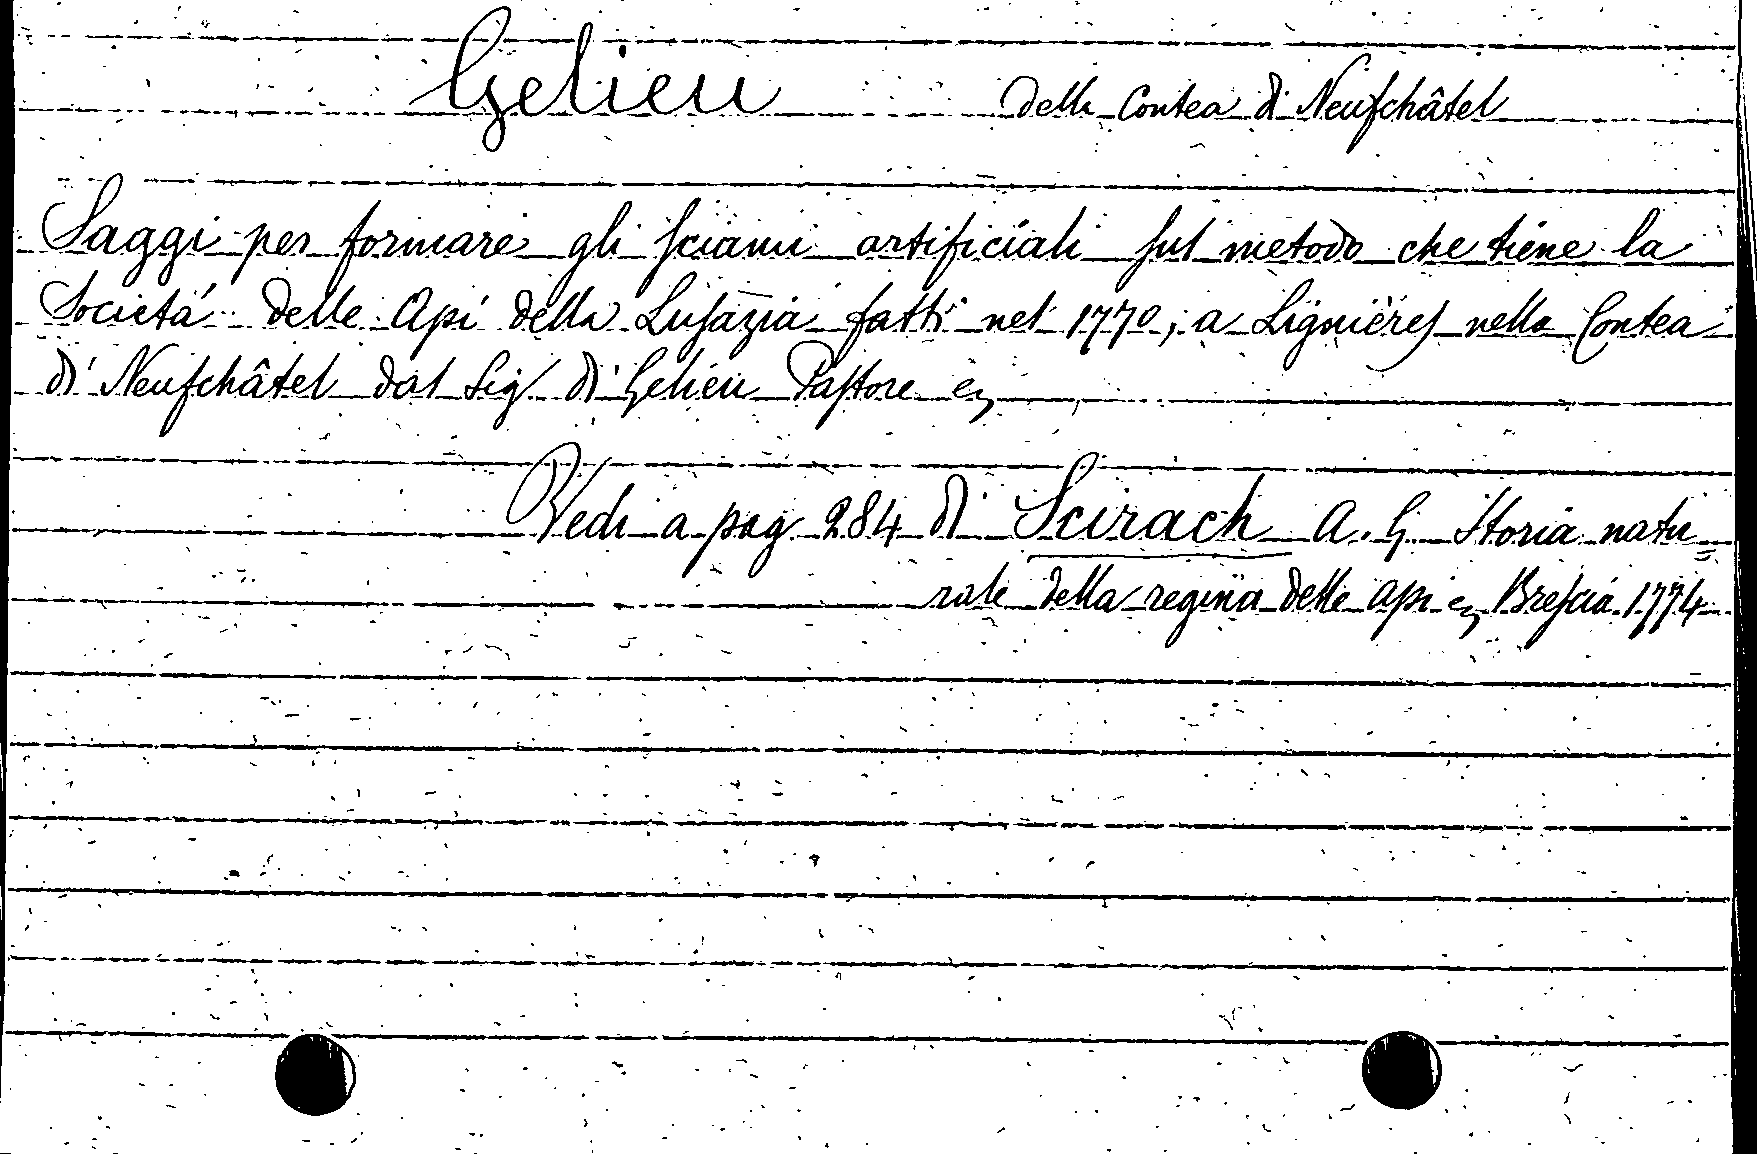 Gelieu della Contea di Neufchâtel
Saggi per formare gli sciami artificiali sul metodo che tiene la
Societá delle Api della Lusazia fatti nel 1770, a Lignières nella Contea
di Neufchâtel dal Sig. di Gelieu Pastore ec
Vedi a pag. 284 di Scirach A. G. Storia natu=
rale della regina delle api ec Brescia 1774